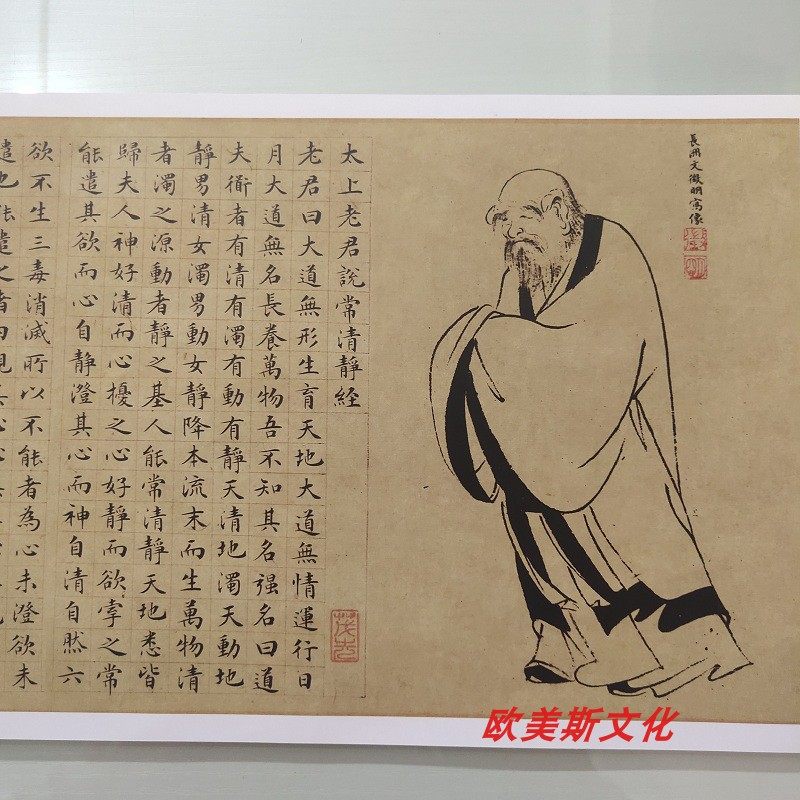 長洲文徵明寫像
太上老君說常清靜經
老君曰大道無形生育天地大道無情運行日
月大道無名長養萬物吾不知其名强名曰道
夫衜者有清有濁有動有靜天清地濁天動地
靜男清女濁男動女靜降本流末而生萬物清
者濁之源動者靜之基人能常清靜天地悉皆
歸夫人神好清而心擾之心好靜而欲牽之常
能遣其欲而心自靜澄其心而神自清自然六
欲不生三毒消滅所以不能者為心未澄欲未
遣也能遣之者內觀
欧美斯文化